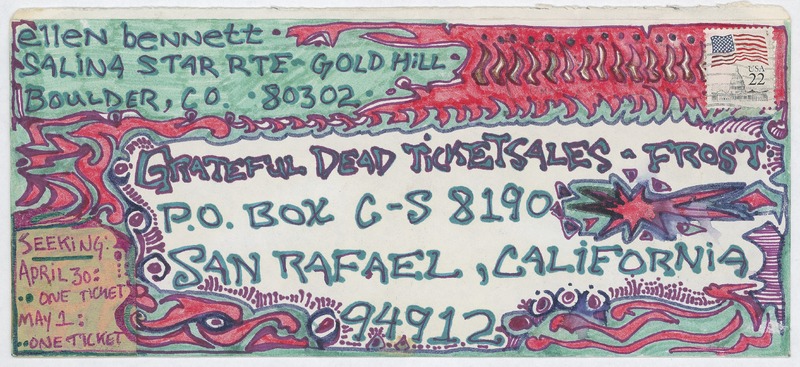 ellen bennett
SALINA STAR RTE - GOLD HILL
BOULDER, CO. 80302
USA
22
GRATEFUL DEAD TICKETSALES - FROST
P.O. BOX C-S 8190
SAN RAFAEL, CALIFORNIA
94912
SEEKING:
APRIL 30:
ONE TICKET
MAY 1:
ONE TICKET